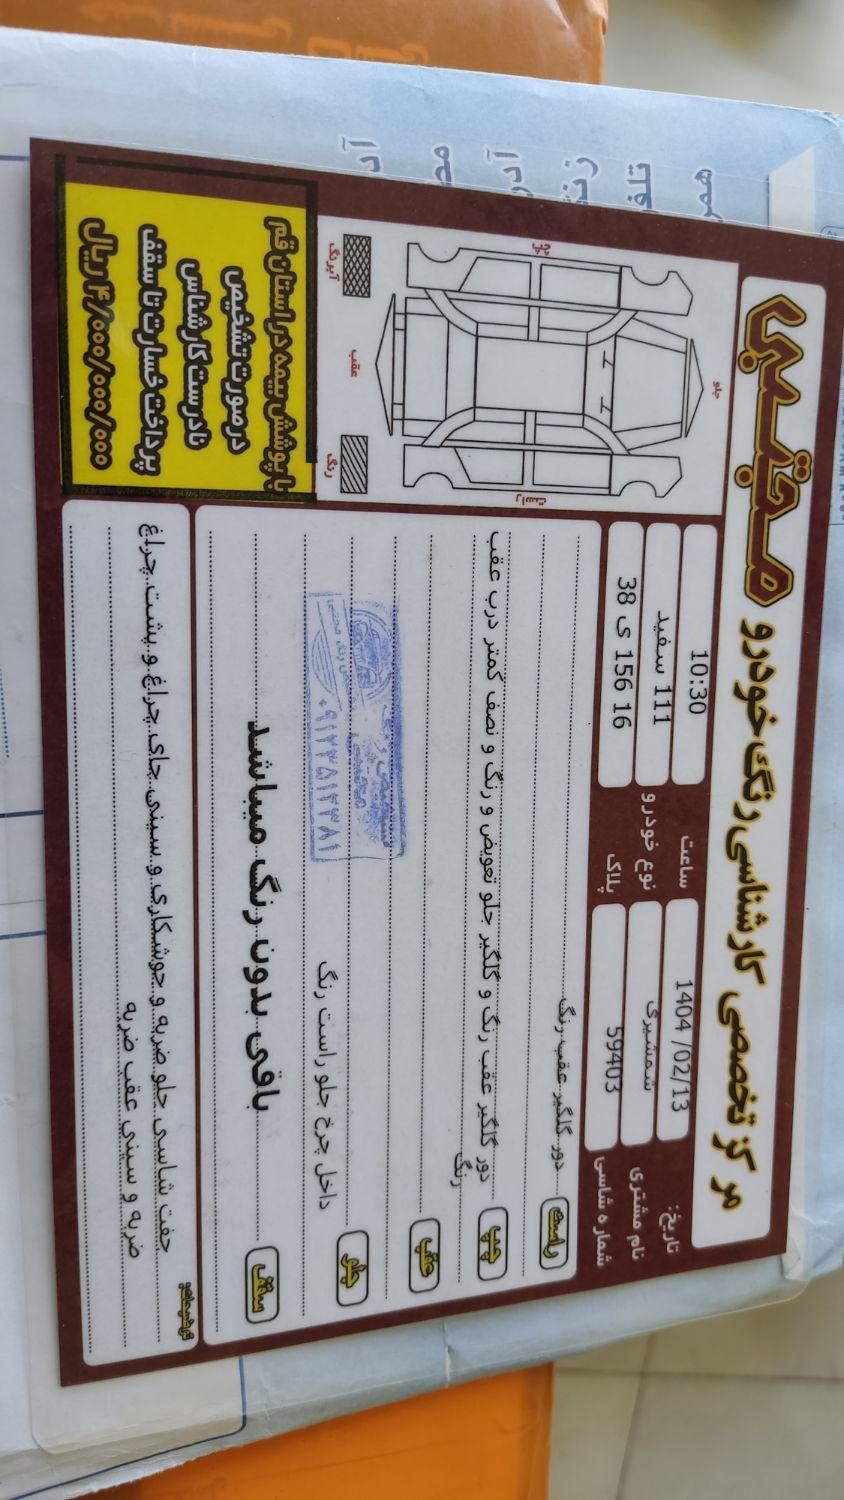 مرکز تخصصی کارشناسی رنگ خودرو مجتبی
تاریخ: 1404 /02/13 ساعت 10:30
نام مشتری شمشیری نوع خودرو 111 سفید
شماره شاسی 59403 پلاک 38 ی 156 16
راست دور گلگیر عقب رنگ
چپ دور گلگیر عقب رنگ و گلگیر جلو تعویض و رنگ و نصف کمتر درب عقب
رنگ
عقب
جلو داخل چرخ جلو راست رنگ
سقف باقی بدون رنگ میباشد
توضیحات:
جفت شاسی جلو ضربه و جوشکاری و سینی جای چراغ و پشت چراغ
ضربه و سینی عقب ضربه
۰۹۱۲۲۵۱۳۴۸۱
جلو
چپ
راست
عقب
آبرنگ
رنگ
با پوشش بیمه در استان قم
درصورت تشخیص
نادرست کارشناس
پرداخت خسارت تا سقف
۴/۰۰۰/۰۰۰/۰۰۰ ریال
همر
تلفن